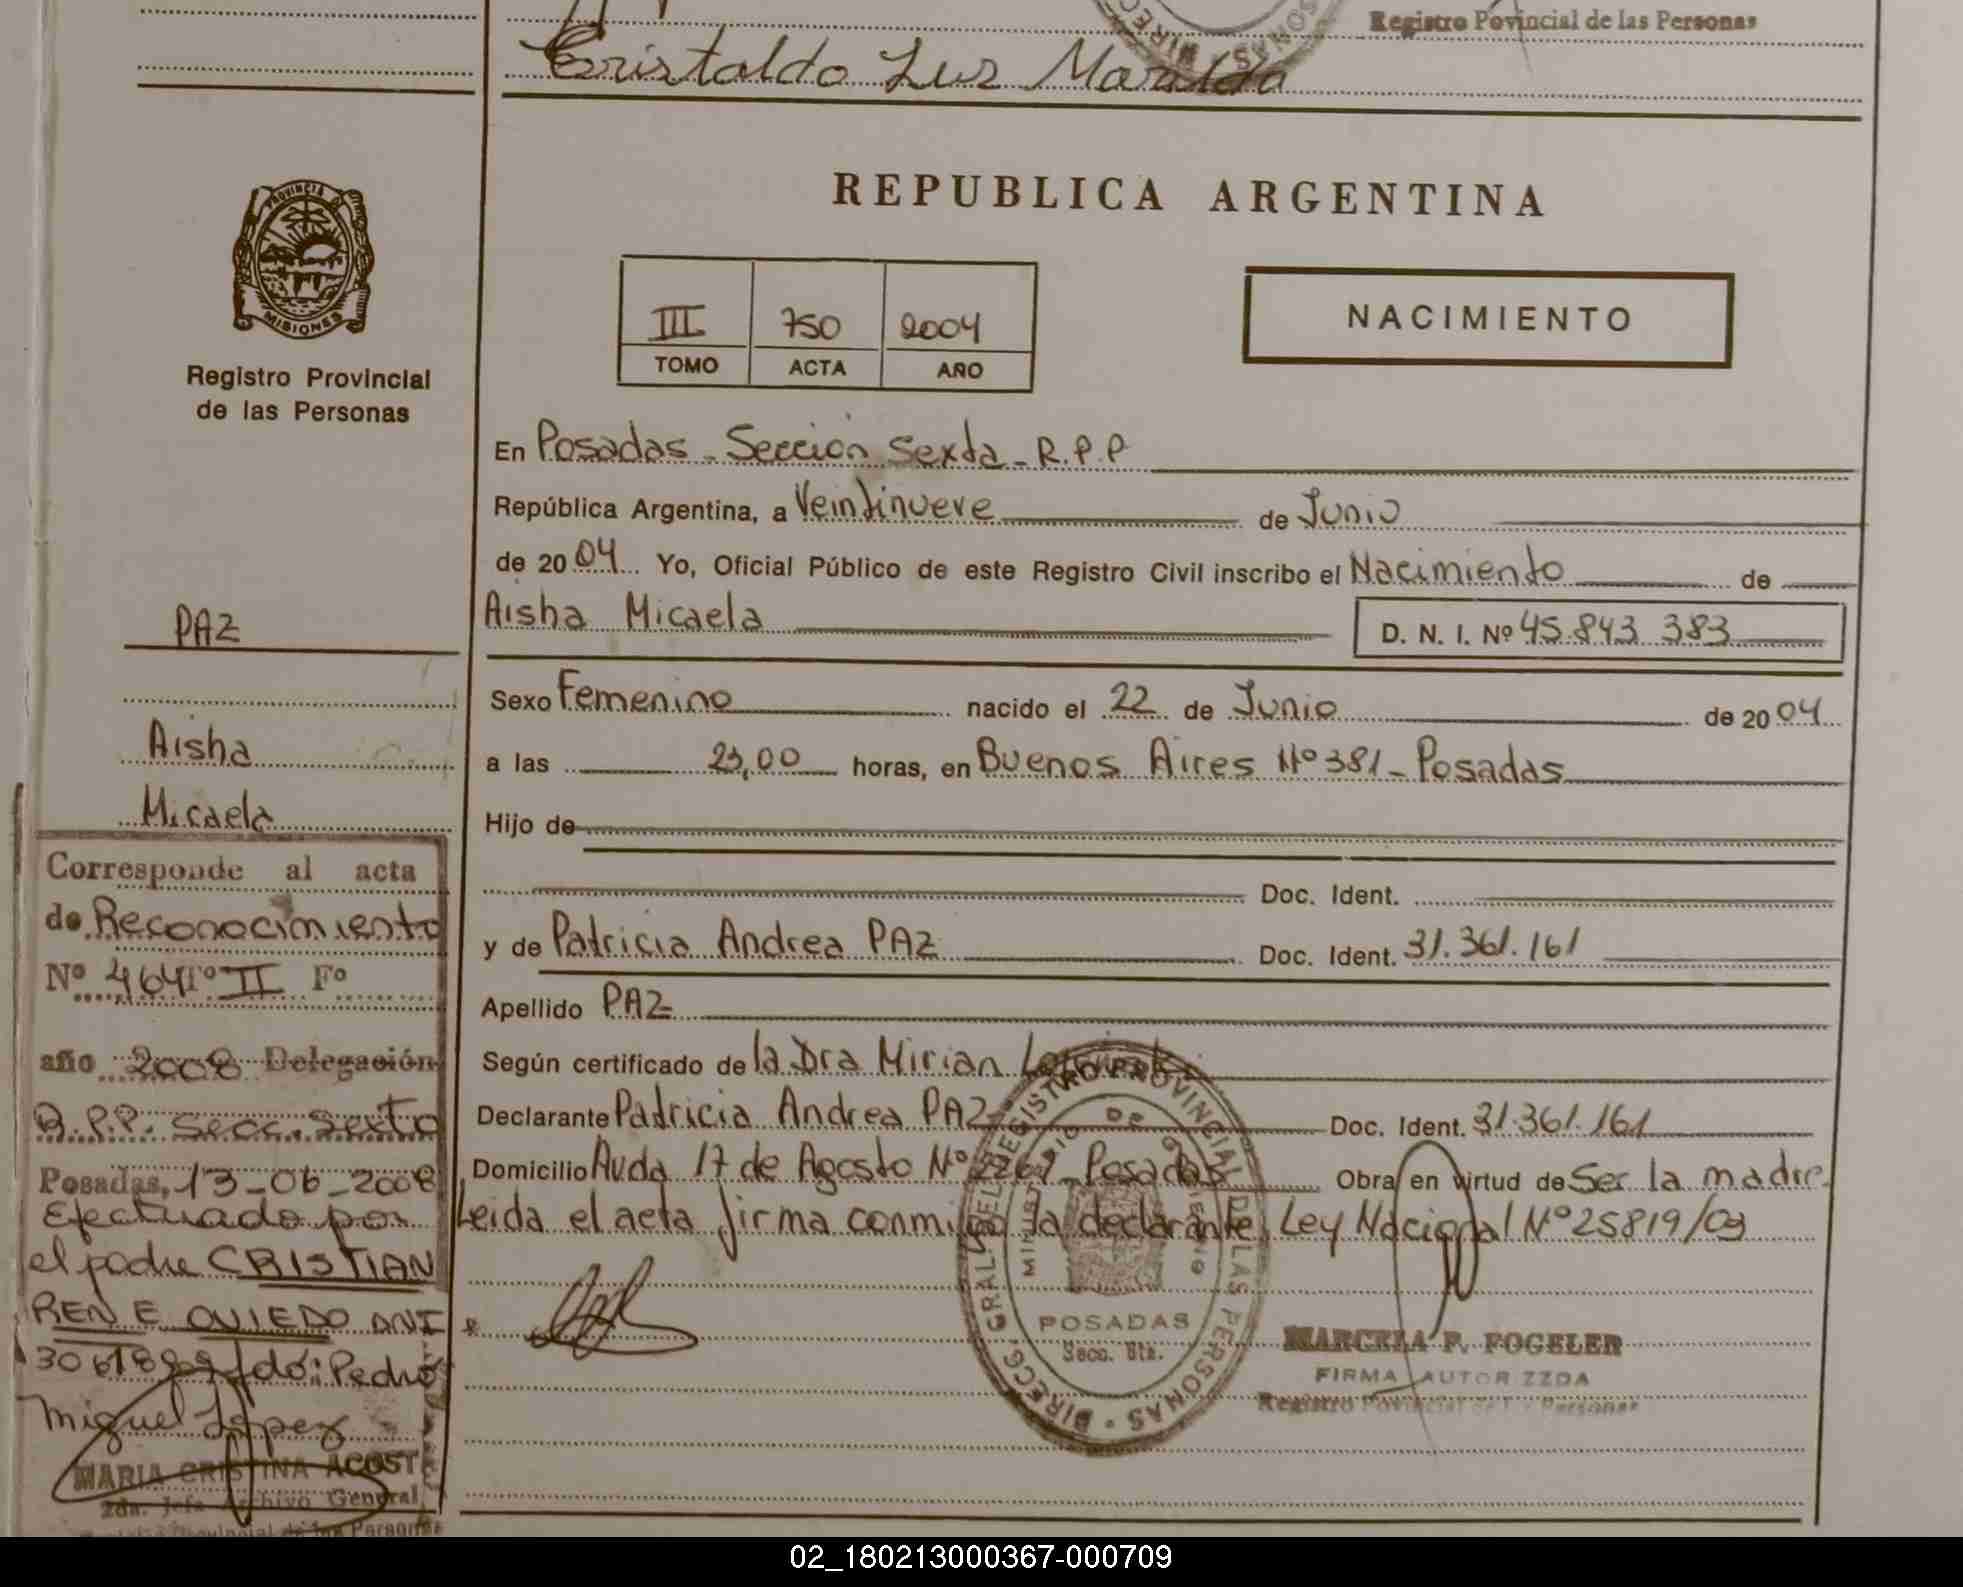 Registro Povincial de las Personas
Cristaldo Luz Maralda
REPUBLICA ARGENTINA
PROVINCIA DE
MISIONES
Registro Provincial
de las Personas
III 750 2004
TOMO ACTA AÑO
NACIMIENTO
En Posadas - Sección Sexta - R.P.P
República Argentina, a Veintinueve de Junio
de 2004 Yo, Oficial Público de este Registro Civil inscribo el Nacimiento de
Aisha Micaela D. N. I. Nº 45.843.383
Sexo Femenino nacido el 22 de Junio de 2004
a las 23,00 horas, en Buenos Aires Nº 381 - Posadas
Hijo de
Doc. Ident.
y de Patricia Andrea PAZ Doc. Ident. 31.361.161
Apellido PAZ
Según certificado de la Dra Mirian
Declarante Patricia Andrea PAZ Doc. Ident. 31.361.161
Domicilio Avda 17 de Agosto Nº Posadas Obra en virtud de Ser la madre.
Leida el acta firma conmigo la declarante. Ley Nacional Nº 25819/03
PAZ
Aisha
Micaela
Corresponde al acta
de Reconocimiento
Nº 464 Tº II Fº
año 2008 Delegación
R.P.P. Secc. Sexta
Posadas, 13-06-2008
Efectuado por
el padre CRISTIAN
RENE OVIEDO DNI
fdo: Pedro
Miguel Lopez
MARIA CRISTINA ACOST
2da. Jefa Archivo General
Provincial de las Personas
DIRECC. GRAL. DEL REGISTRO PROVINCIAL DE LAS PERSONAS
MINISTERIO DE GOBIERNO
POSADAS
Secc. 6ta.
MARCELA F. FOGELER
FIRMA AUTORIZZDA
Registro Povincial de las Personas
02_180213000367-000709